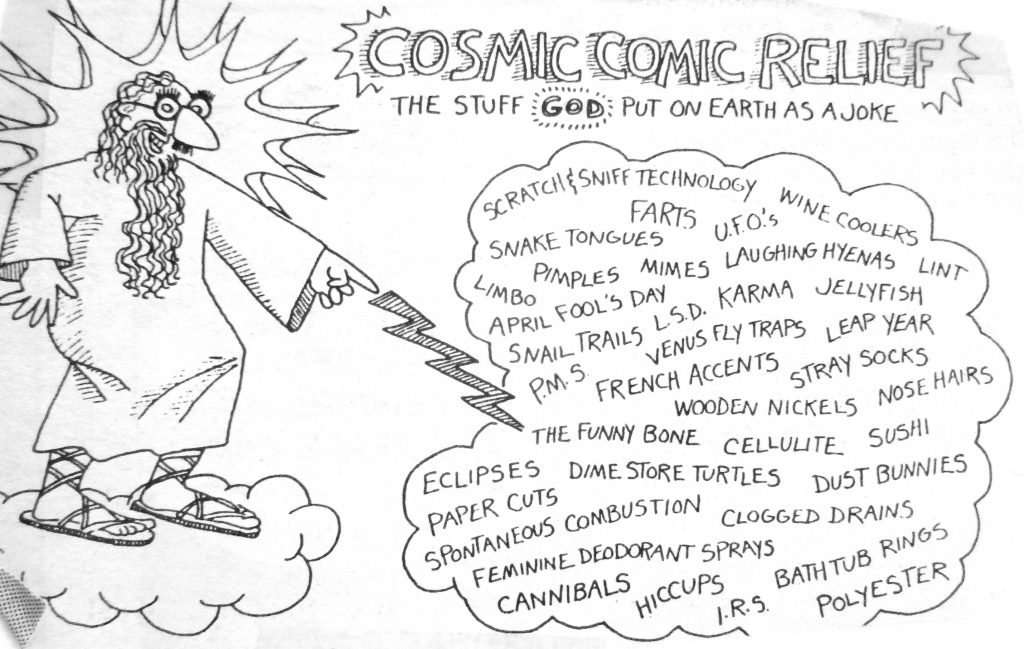 COSMIC COMIC RELIEF
THE STUFF GOD PUT ON EARTH AS A JOKE
SCRATCH & SNIFF TECHNOLOGY
WINE COOLERS
FARTS
U.F.O.'s
SNAKE TONGUES
LAUGHING HYENAS
LINT
PIMPLES
MIMES
LIMBO
KARMA
JELLYFISH
APRIL FOOL'S DAY
L.S.D.
SNAIL TRAILS
VENUS FLY TRAPS
LEAP YEAR
P.M.S.
FRENCH ACCENTS
STRAY SOCKS
WOODEN NICKELS
NOSE HAIRS
THE FUNNY BONE
CELLULITE
SUSHI
ECLIPSES
DIME STORE TURTLES
DUST BUNNIES
PAPER CUTS
SPONTANEOUS COMBUSTION
CLOGGED DRAINS
FEMININE DEODORANT SPRAYS
BATHTUB RINGS
CANNIBALS
HICCUPS
I.R.S.
POLYESTER